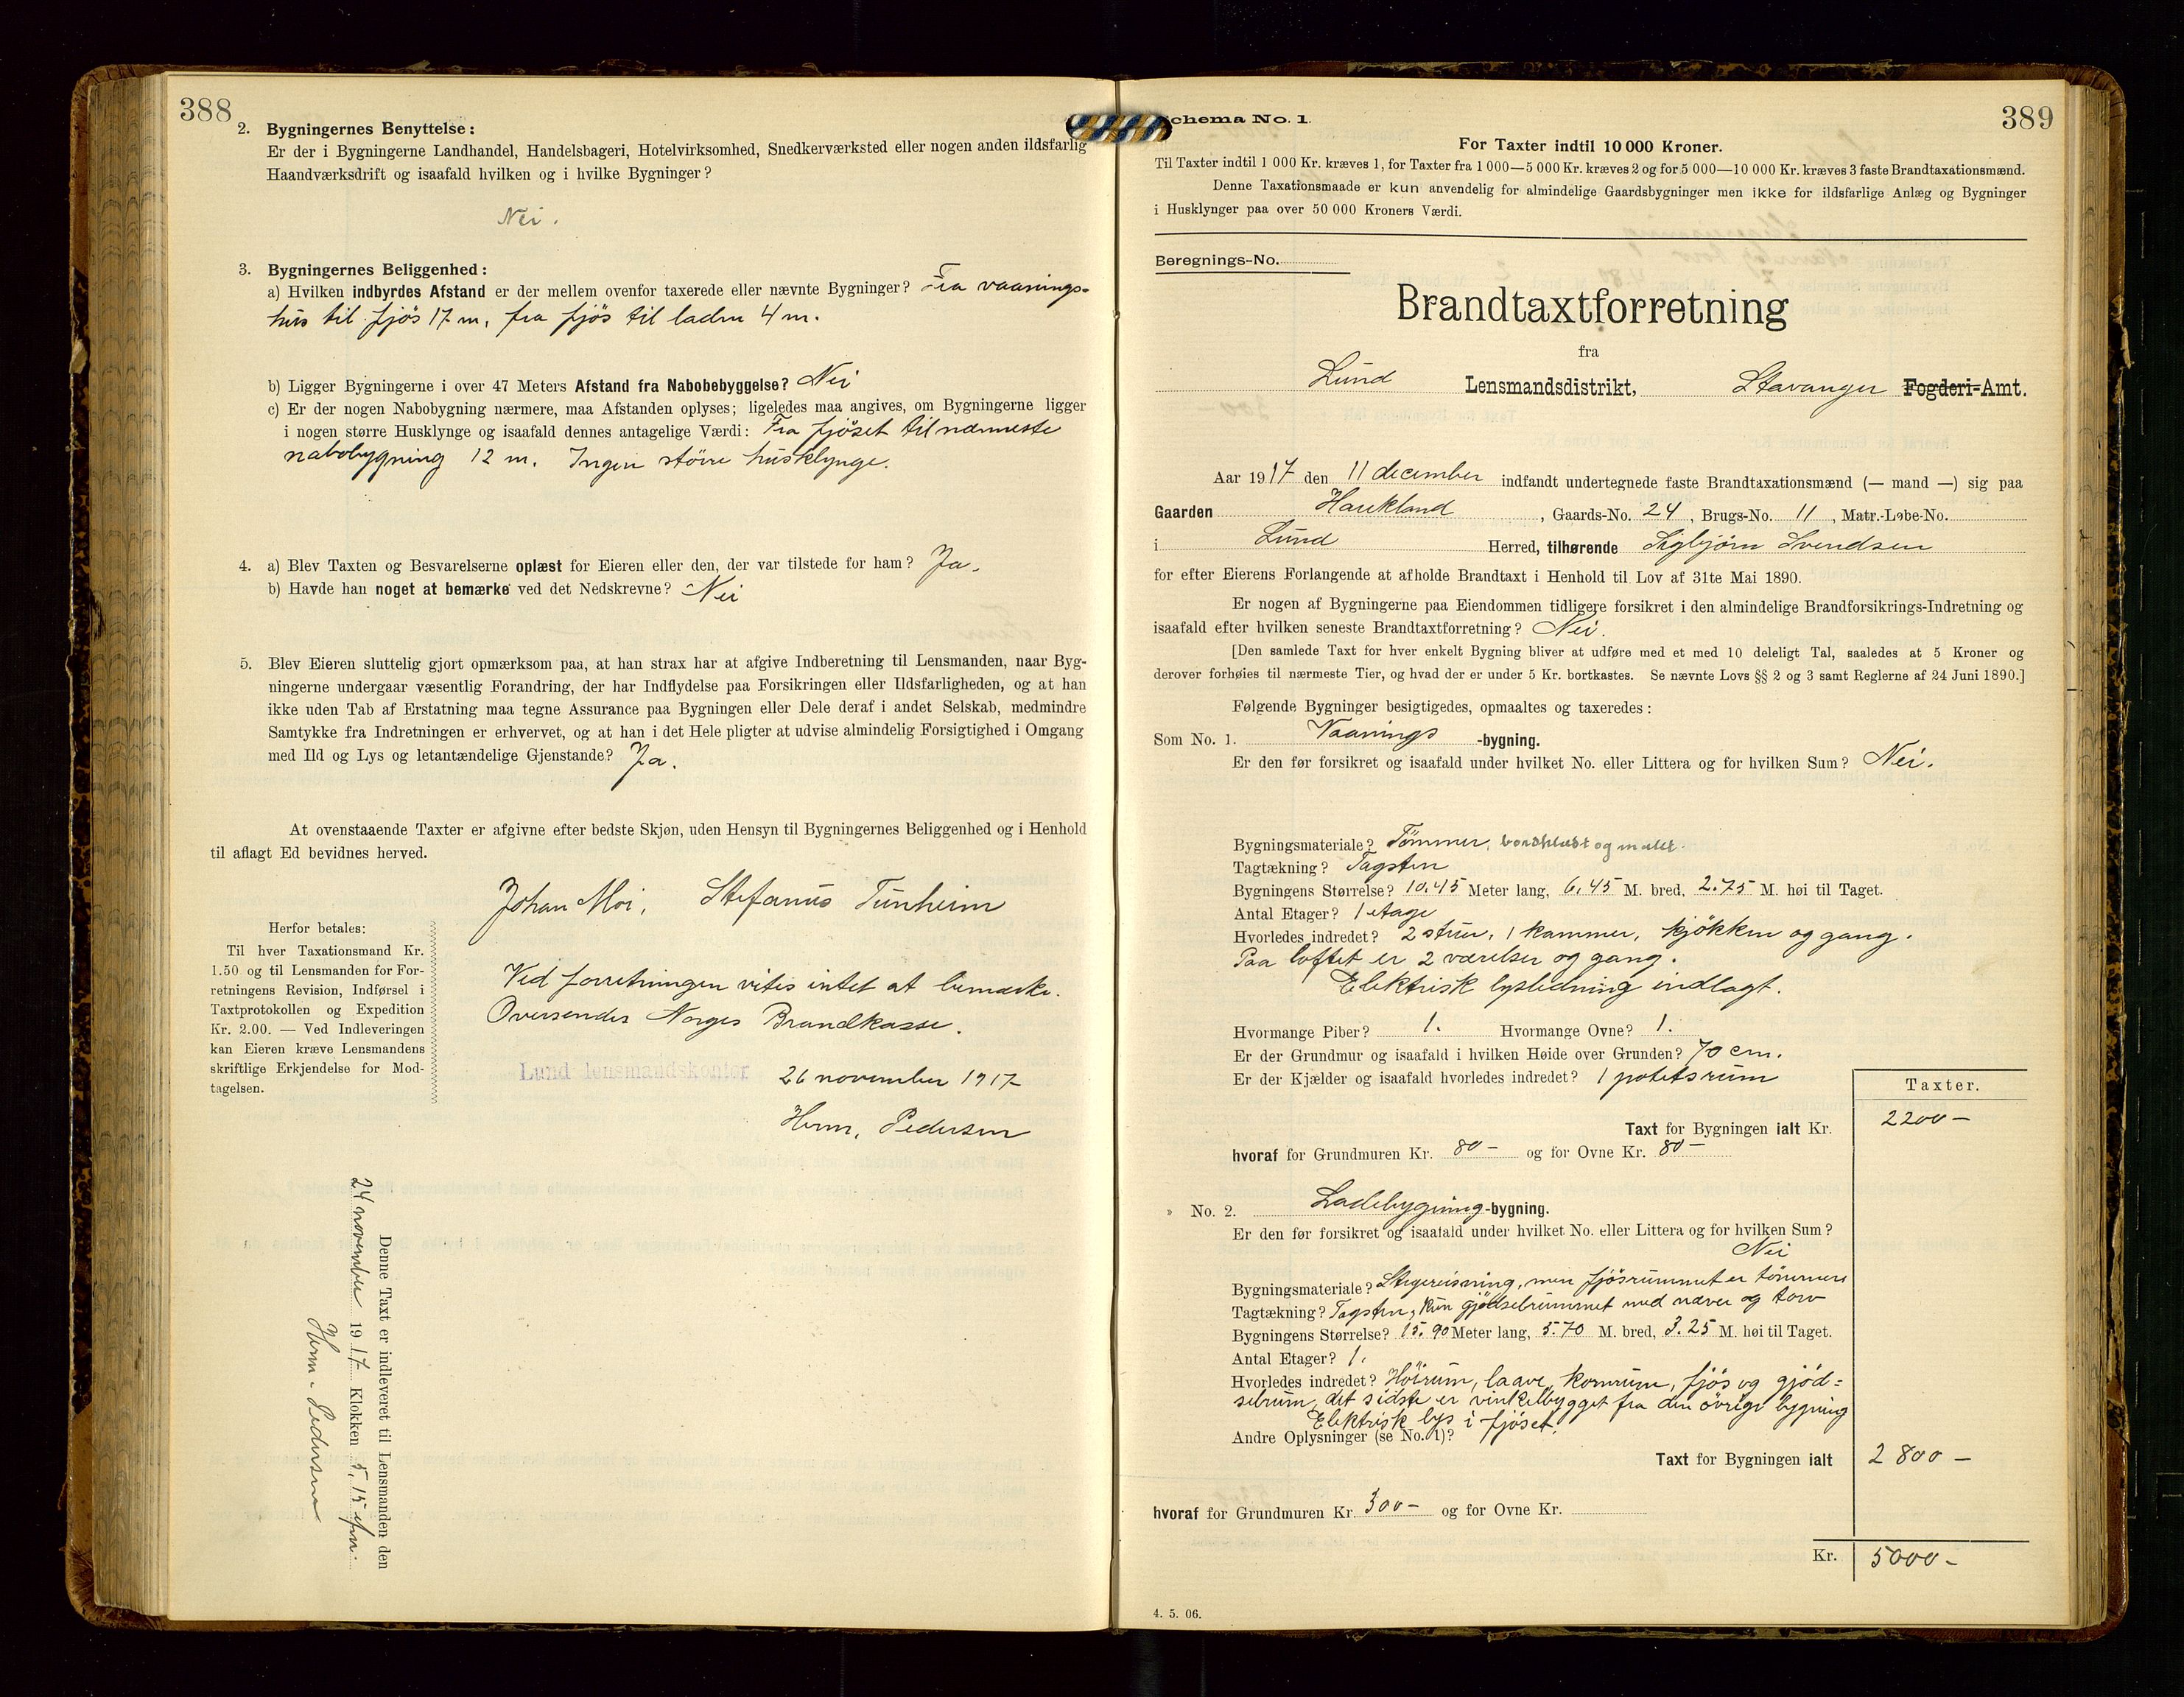 388
2. Bygningernes Benyttelse:
Er der i Bygningerne Landhandel, Handelsbageri, Hotelvirksomhed, Snedkerværksted eller nogen anden ildsfarlig
Haandværksdrift og isaafald hvilken og i hvilke Bygninger?
Nei.
3. Bygningernes Beliggenhed:
a) Hvilken indbyrdes Afstand er der mellem ovenfor taxerede eller nævnte Bygninger? Fra vaanings-
hus til fjös 17 m, fra fjös til laden 4 m.
b) Ligger Bygningerne i over 47 Meters Afstand fra Nabobebyggelse? Nei
c) Er der nogen Nabobygning nærmere, maa Afstanden oplyses; ligeledes maa angives, om Bygningerne ligger
i nogen større Husklynge og isaafald dennes antagelige Værdi: Fra fjöset til nærmeste
nabobygning 12 m. Ingen större husklynge.
4. a) Blev Taxten og Besvarelserne oplæst for Eieren eller den, der var tilstede for ham? Ja.
b) Havde han noget at bemærke ved det Nedskrevne? Nei
5. Blev Eieren sluttelig gjort opmærksom paa, at han strax har at afgive Indberetning til Lensmanden, naar Byg-
ningerne undergaar væsentlig Forandring, der har Indflydelse paa Forsikringen eller Ildsfarligheden, og at han
ikke uden Tab af Erstatning maa tegne Assurance paa Bygningen eller Dele deraf i andet Selskab, medmindre
Samtykke fra Indretningen er erhvervet, og at han i det Hele pligter at udvise almindelig Forsigtighed i Omgang
med Ild og Lys og letantændelige Gjenstande? Ja.
At ovenstaaende Taxter er afgivne efter bedste Skjøn, uden Hensyn til Bygningernes Beliggenhed og i Henhold
til aflagt Ed bevidnes herved.
Johan Moi, Stefanus Tunheim
Herfor betales:
Til hver Taxationsmand Kr.
1.50 og til Lensmanden for For-
retningens Revision, Indførsel i
Taxtprotokollen og Expedition
Kr. 2.00. — Ved Indleveringen
kan Eieren kræve Lensmandens
skriftlige Erkjendelse for Mod-
tagelsen.
Ved forretningen vites intet at bemærke.
Oversendes Norges Brandkasse.
Lund lensmandskontor 26 november 1917
Herm. Pedersen
Denne Taxt er indleveret til Lensmanden den
24 november 1917 Klokken 5,15 efm.
Herm. Pedersen
389
Schema No. 1.
For Taxter indtil 10 000 Kroner.
Til Taxter indtil 1 000 Kr. kræves 1, for Taxter fra 1 000—5 000 Kr. kræves 2 og for 5 000—10 000 Kr. kræves 3 faste Brandtaxationsmænd.
Denne Taxationsmaade er kun anvendelig for almindelige Gaardsbygninger men ikke for ildsfarlige Anlæg og Bygninger
i Husklynger paa over 50 000 Kroners Værdi.
Beregnings-No.
Brandtaxtforretning
fra
Lund Lensmandsdistrikt, Stavanger Fogderi-Amt.
Aar 1917 den 11 december indfandt undertegnede faste Brandtaxationsmænd (— mand —) sig paa
Gaarden Haukland, Gaards-No. 24, Brugs-No. 11, Matr.-Løbe-No.
i Lund Herred, tilhørende Sigbjörn Svendsen
for efter Eierens Forlangende at afholde Brandtaxt i Henhold til Lov af 31te Mai 1890.
Er nogen af Bygningerne paa Eiendommen tidligere forsikret i den almindelige Brandforsikrings-Indretning og
isaafald efter hvilken seneste Brandtaxtforretning? Nei.
[Den samlede Taxt for hver enkelt Bygning bliver at udføre med et med 10 deleligt Tal, saaledes at 5 Kroner og
derover forhøies til nærmeste Tier, og hvad der er under 5 Kr. bortkastes. Se nævnte Lovs §§ 2 og 3 samt Reglerne af 24 Juni 1890.]
Følgende Bygninger besigtigedes, opmaaltes og taxeredes:
Som No. 1. Vaanings-bygning.
Er den før forsikret og isaafald under hvilket No. eller Littera og for hvilken Sum? Nei.
Bygningsmateriale? Tömmer, bordklædt og malet.
Tagtækning? Tagsten
Bygningens Størrelse? 10.45 Meter lang, 6,45 M. bred, 2.75 M. høi til Taget.
Antal Etager? 1 etage
Hvorledes indredet? 2 stuer, 1 kammer, kjökken og gang.
Paa loftet er 2 værelser og gang.
Elektrisk lysledning indlagt.
Hvormange Piber? 1. Hvormange Ovne? 1.
Er der Grundmur og isaafald i hvilken Høide over Grunden? 70 cm.
Er der Kjælder og isaafald hvorledes indredet? 1 potetsrum
Taxter.
Taxt for Bygningen ialt Kr. 2200 —
hvoraf for Grundmuren Kr. 80 — og for Ovne Kr. 80 —
» No. 2. Ladebygning-bygning.
Er den før forsikret og isaafald under hvilket No. eller Littera og for hvilken Sum?
Nei
Bygningsmateriale? Stegereisning, men fjösrummet er tömmer
Tagtækning? Tagsten, kun gjödselrummet med næver og torv
Bygningens Størrelse? 15.90 Meter lang, 5.70 M. bred, 3.25 M. høi til Taget.
Antal Etager? 1.
Hvorledes indredet? Höirum, laave, kornrum, fjös og gjöd-
selrum, det sidste er vinkelbygget fra den övrige bygning
Elektrisk lys i fjöset.
Andre Oplysninger (se No. 1)?
Taxt for Bygningen ialt 2 800 —
hvoraf for Grundmuren Kr. 300 — og for Ovne Kr.
Kr. 5000 —
4. 5. 06.